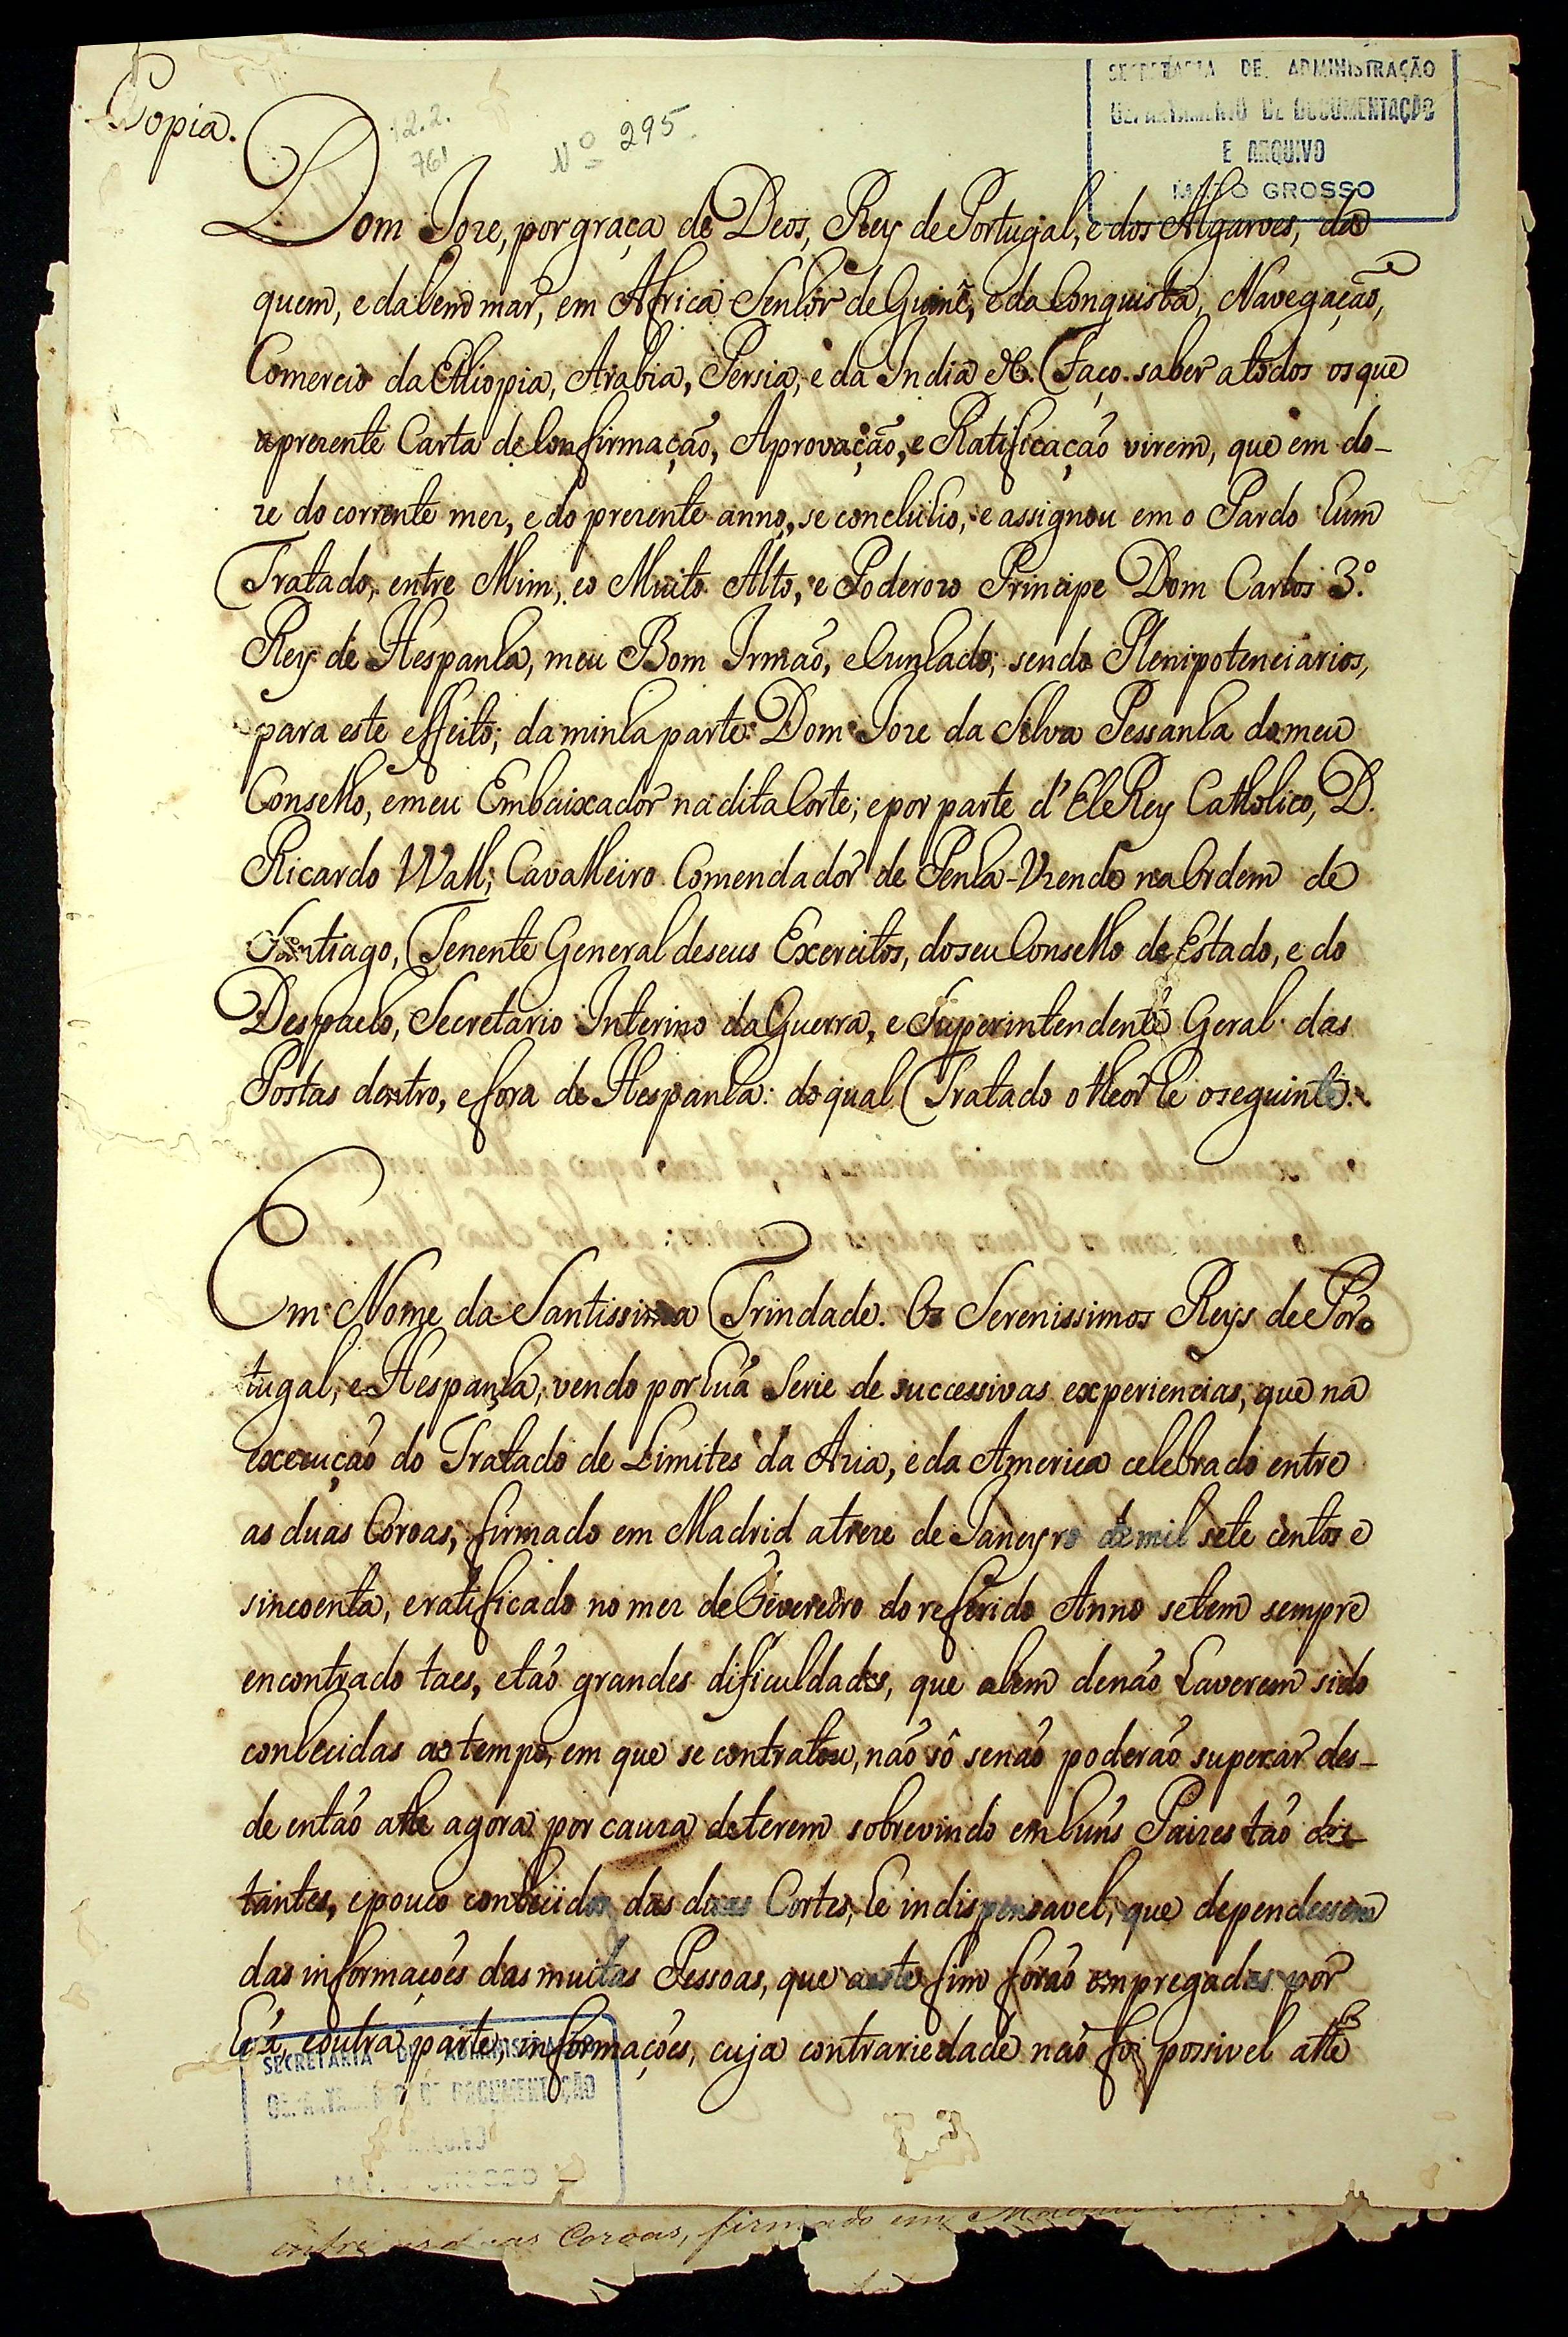 Copia.
12.2.
761
Nº 295
SECRETARIA DE ADMINISTRAÇÃO
DEPARTAMENTO DE DOCUMENTAÇÃO
E ARQUIVO
MATO GROSSO
Dom Joze, por graça de Deos, Rey de Portugal, e dos Algarves, da
quem, e dalem mar, em Africa Senhor de Guiné, e da Conquista, Navegação,
Comercio da Ethiopia, Arabia, Persia, e da India &. Faço saber a todos os que
a prezente Carta de Confirmação, Aprovação, e Ratificação virem, que em do-
ze do corrente mez, e do prezente anno, se concluhio, e assignou em o Pardo hum
Tratado, entre Mim, eo Muito Alto, e Poderozo Principe Dom Carlos 3.º
Rey de Hespanha, meu Bom Irmaõ, e Cunhado; sendo Plenipotenciarios,
para este effeito; da minha parte Dom Joze da Silva Pessanha do meu
Conselho, e meu Embaixador na dita Corte; e por parte d'ElRey Catholico, D.
Ricardo Wall; Cavalheiro Comendador de Penha-Uzende na Ordem de
Santiago, Tenente General de seus Exercitos, do seu Conselho de Estado, e do
Despacho, Secretario Interino da Guerra, e Superintendente Geral das
Postas dentro, e fora de Hespanha: do qual Tratado o theor he o seguinte:
Em Nome da Santissima Trindade. Os Serenissimos Reys de Por-
tugal, e Hespanha, vendo por huã Serie de successivas experiencias, que na
execuçaõ do Tratado de Limites da Azia, e da America celebrado entre
as duas Coroas, firmado em Madrid a treze de Janeyro de mil sete centos e
sincoenta, e ratificado no mez de Fevereiro do referido Anno se tem sempre
encontrado taes, e taõ grandes dificuldades, que alem de naõ haverem sido
conhecidas ao tempo, em que se contratou, naõ só se naõ poderaõ superar des-
de entaõ athe agora por cauza de terem sobrevindo em huns Paizes taõ dis-
tantes, e pouco conhecidos das duas Cortes, he indispensavel, que dependessem
das informaçoẽs das muitas Pessoas, que a este fim foraõ empregadas por
huã, e outra parte, informações, cuja contrariedade naõ foi possivel athé
SECRETARIA DE ADMINISTRAÇÃO
DEPARTAMENTO DE DOCUMENTAÇÃO
E ARQUIVO
MATO GROSSO
entre as duas Coroas, firmado em